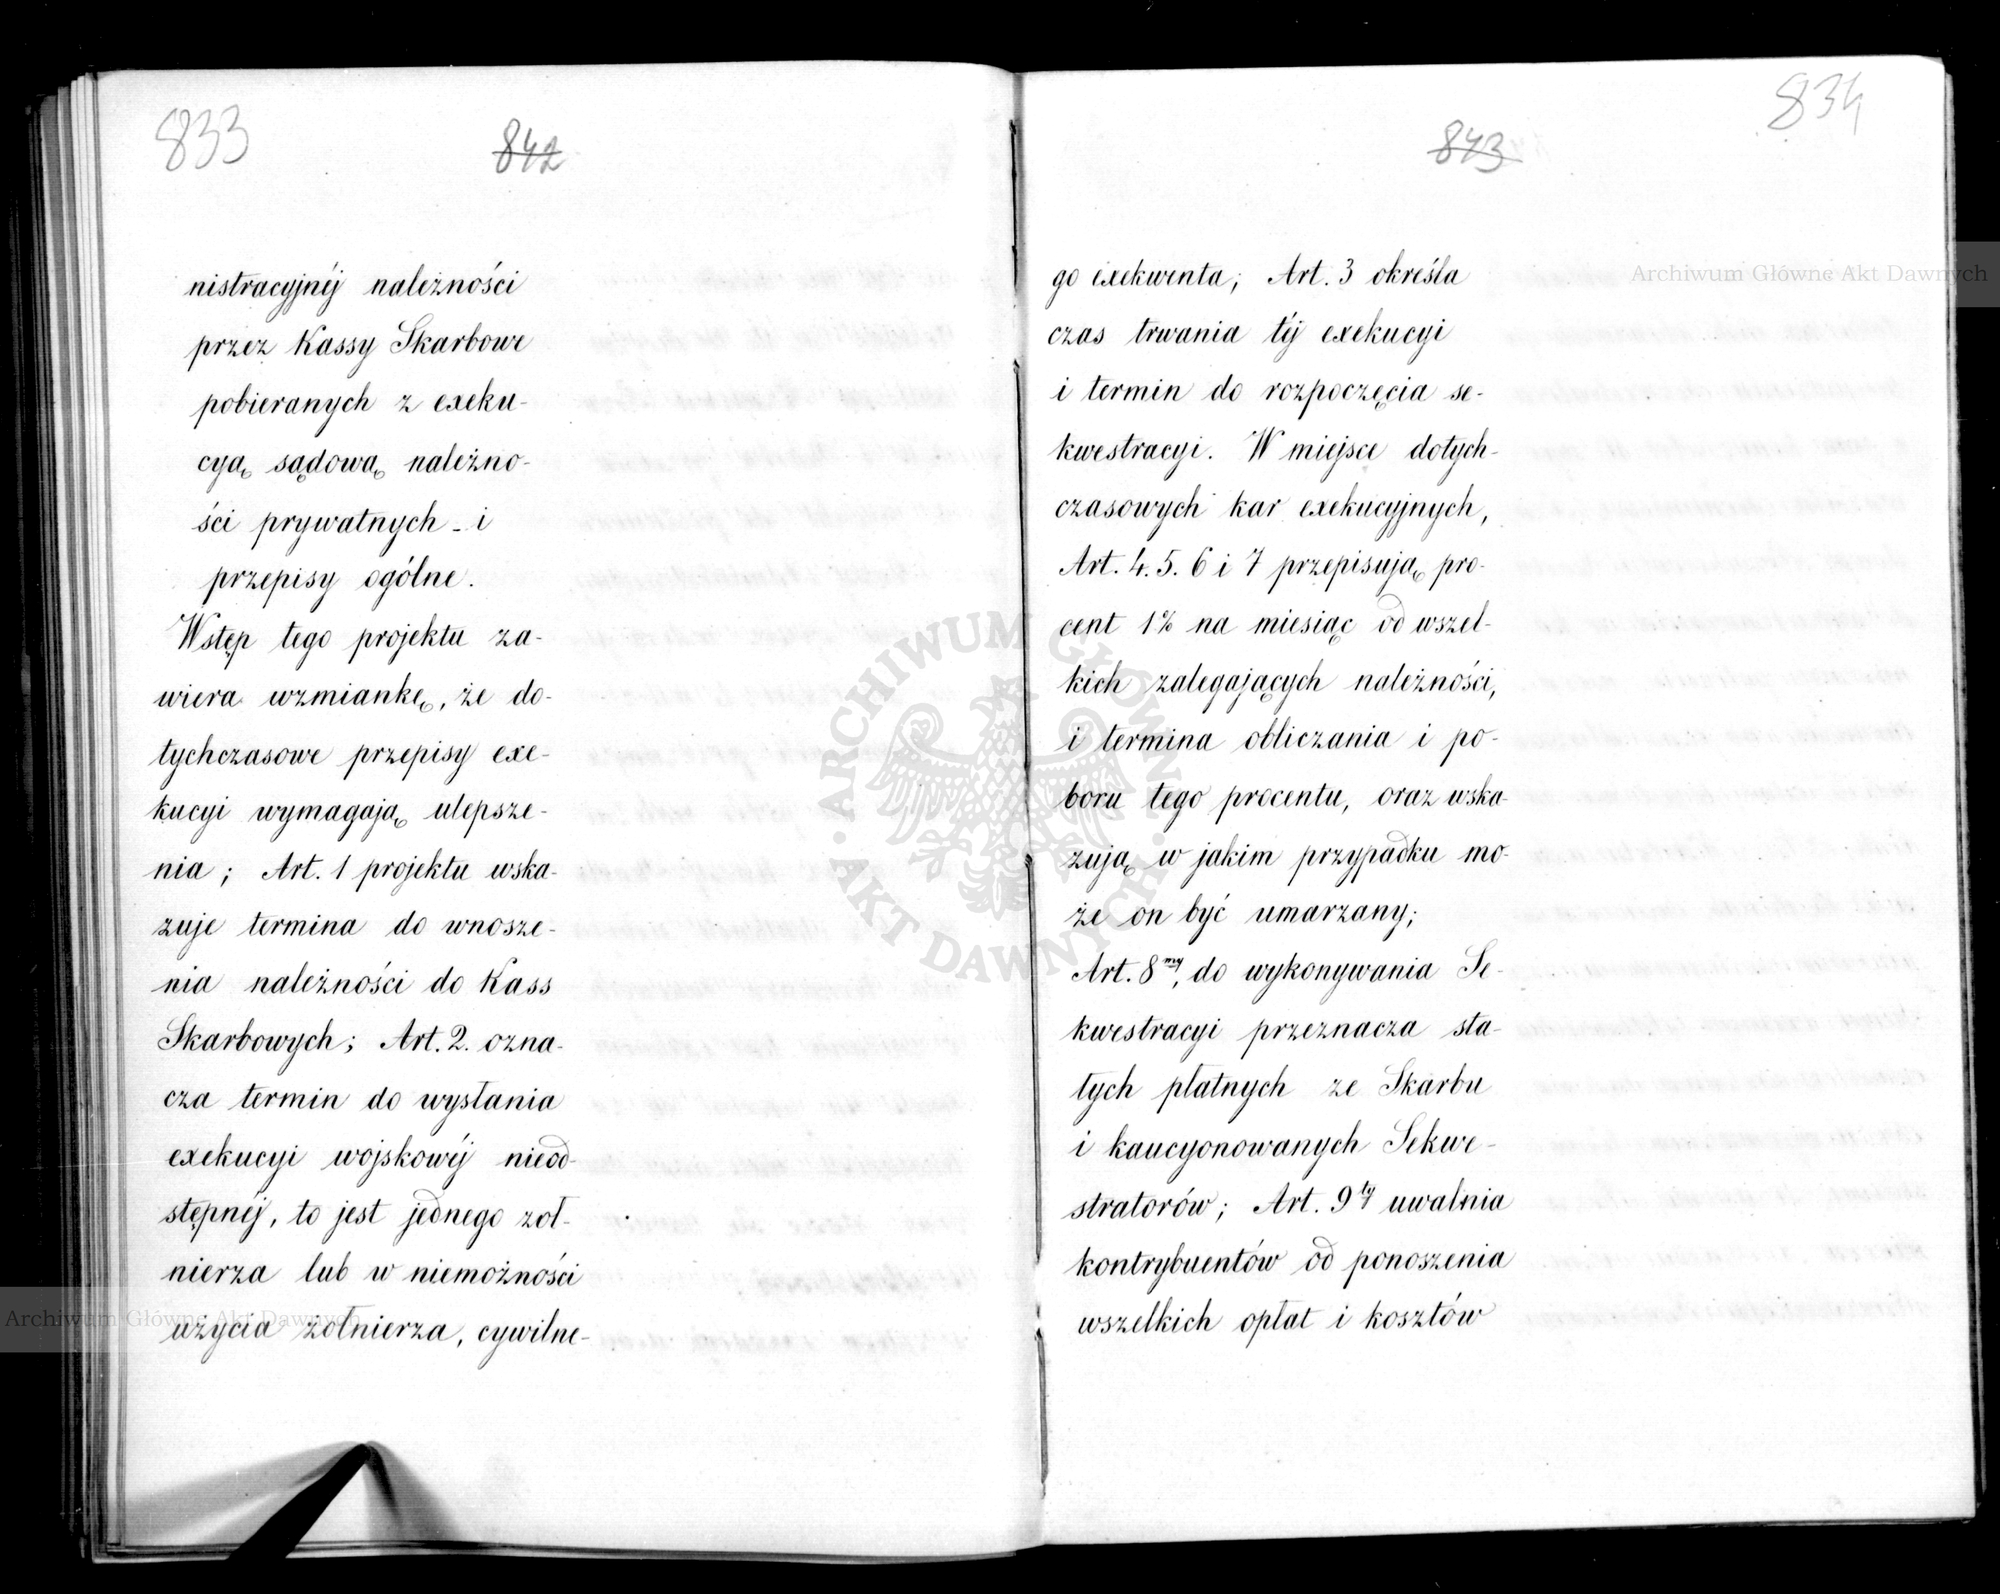 833
842
nistracyjnéj należności
przez Kassy Skarbowe
pobieranych z exeku-
cyą sądową należno-
ści prywatnych - i
przepisy ogólne.
Wstęp tego projektu za-
wiera wzmiankę, że do-
tychczasowe przepisy exe-
kucyi wymagają ulepsze-
nia; Art. 1 projektu wska-
zuje termina do wnosze-
nia należności do Kass
Skarbowych; Art. 2. ozna-
cza termin do wysłania
exekucyi wojskowéj nieod-
stępnéj, to jest jednego żoł-
nierza lub w niemożności
użycia żołnierza, cywilne-
834
843
go exekwenta; Art. 3 określa
czas trwania téj exekucyi
i termin do rozpoczęcia se-
kwestracyi. W miejsce dotych-
czasowych kar exekucyjnych,
Art. 4. 5. 6 i 7 przepisują pro-
cent 1% na miesiąc od wszel-
kich zalegających należności,
i termina obliczania i po-
boru tego procentu, oraz wska-
zują w jakim przypadku mo-
że on być umarzany;
Art. 8my, do wykonywania Se-
kwestracyi przeznacza sta-
łych płatnych ze Skarbu
i kaucyonowanych Sekwe-
stratorów; Art. 9ty uwalnia
kontrybuentów od ponoszenia
wszelkich opłat i kosztów
Archiwum Główne Akt Dawnych
Archiwum Główne Akt Dawnych
ARCHIWUM GŁÓWNE · AKT DAWNYCH ·